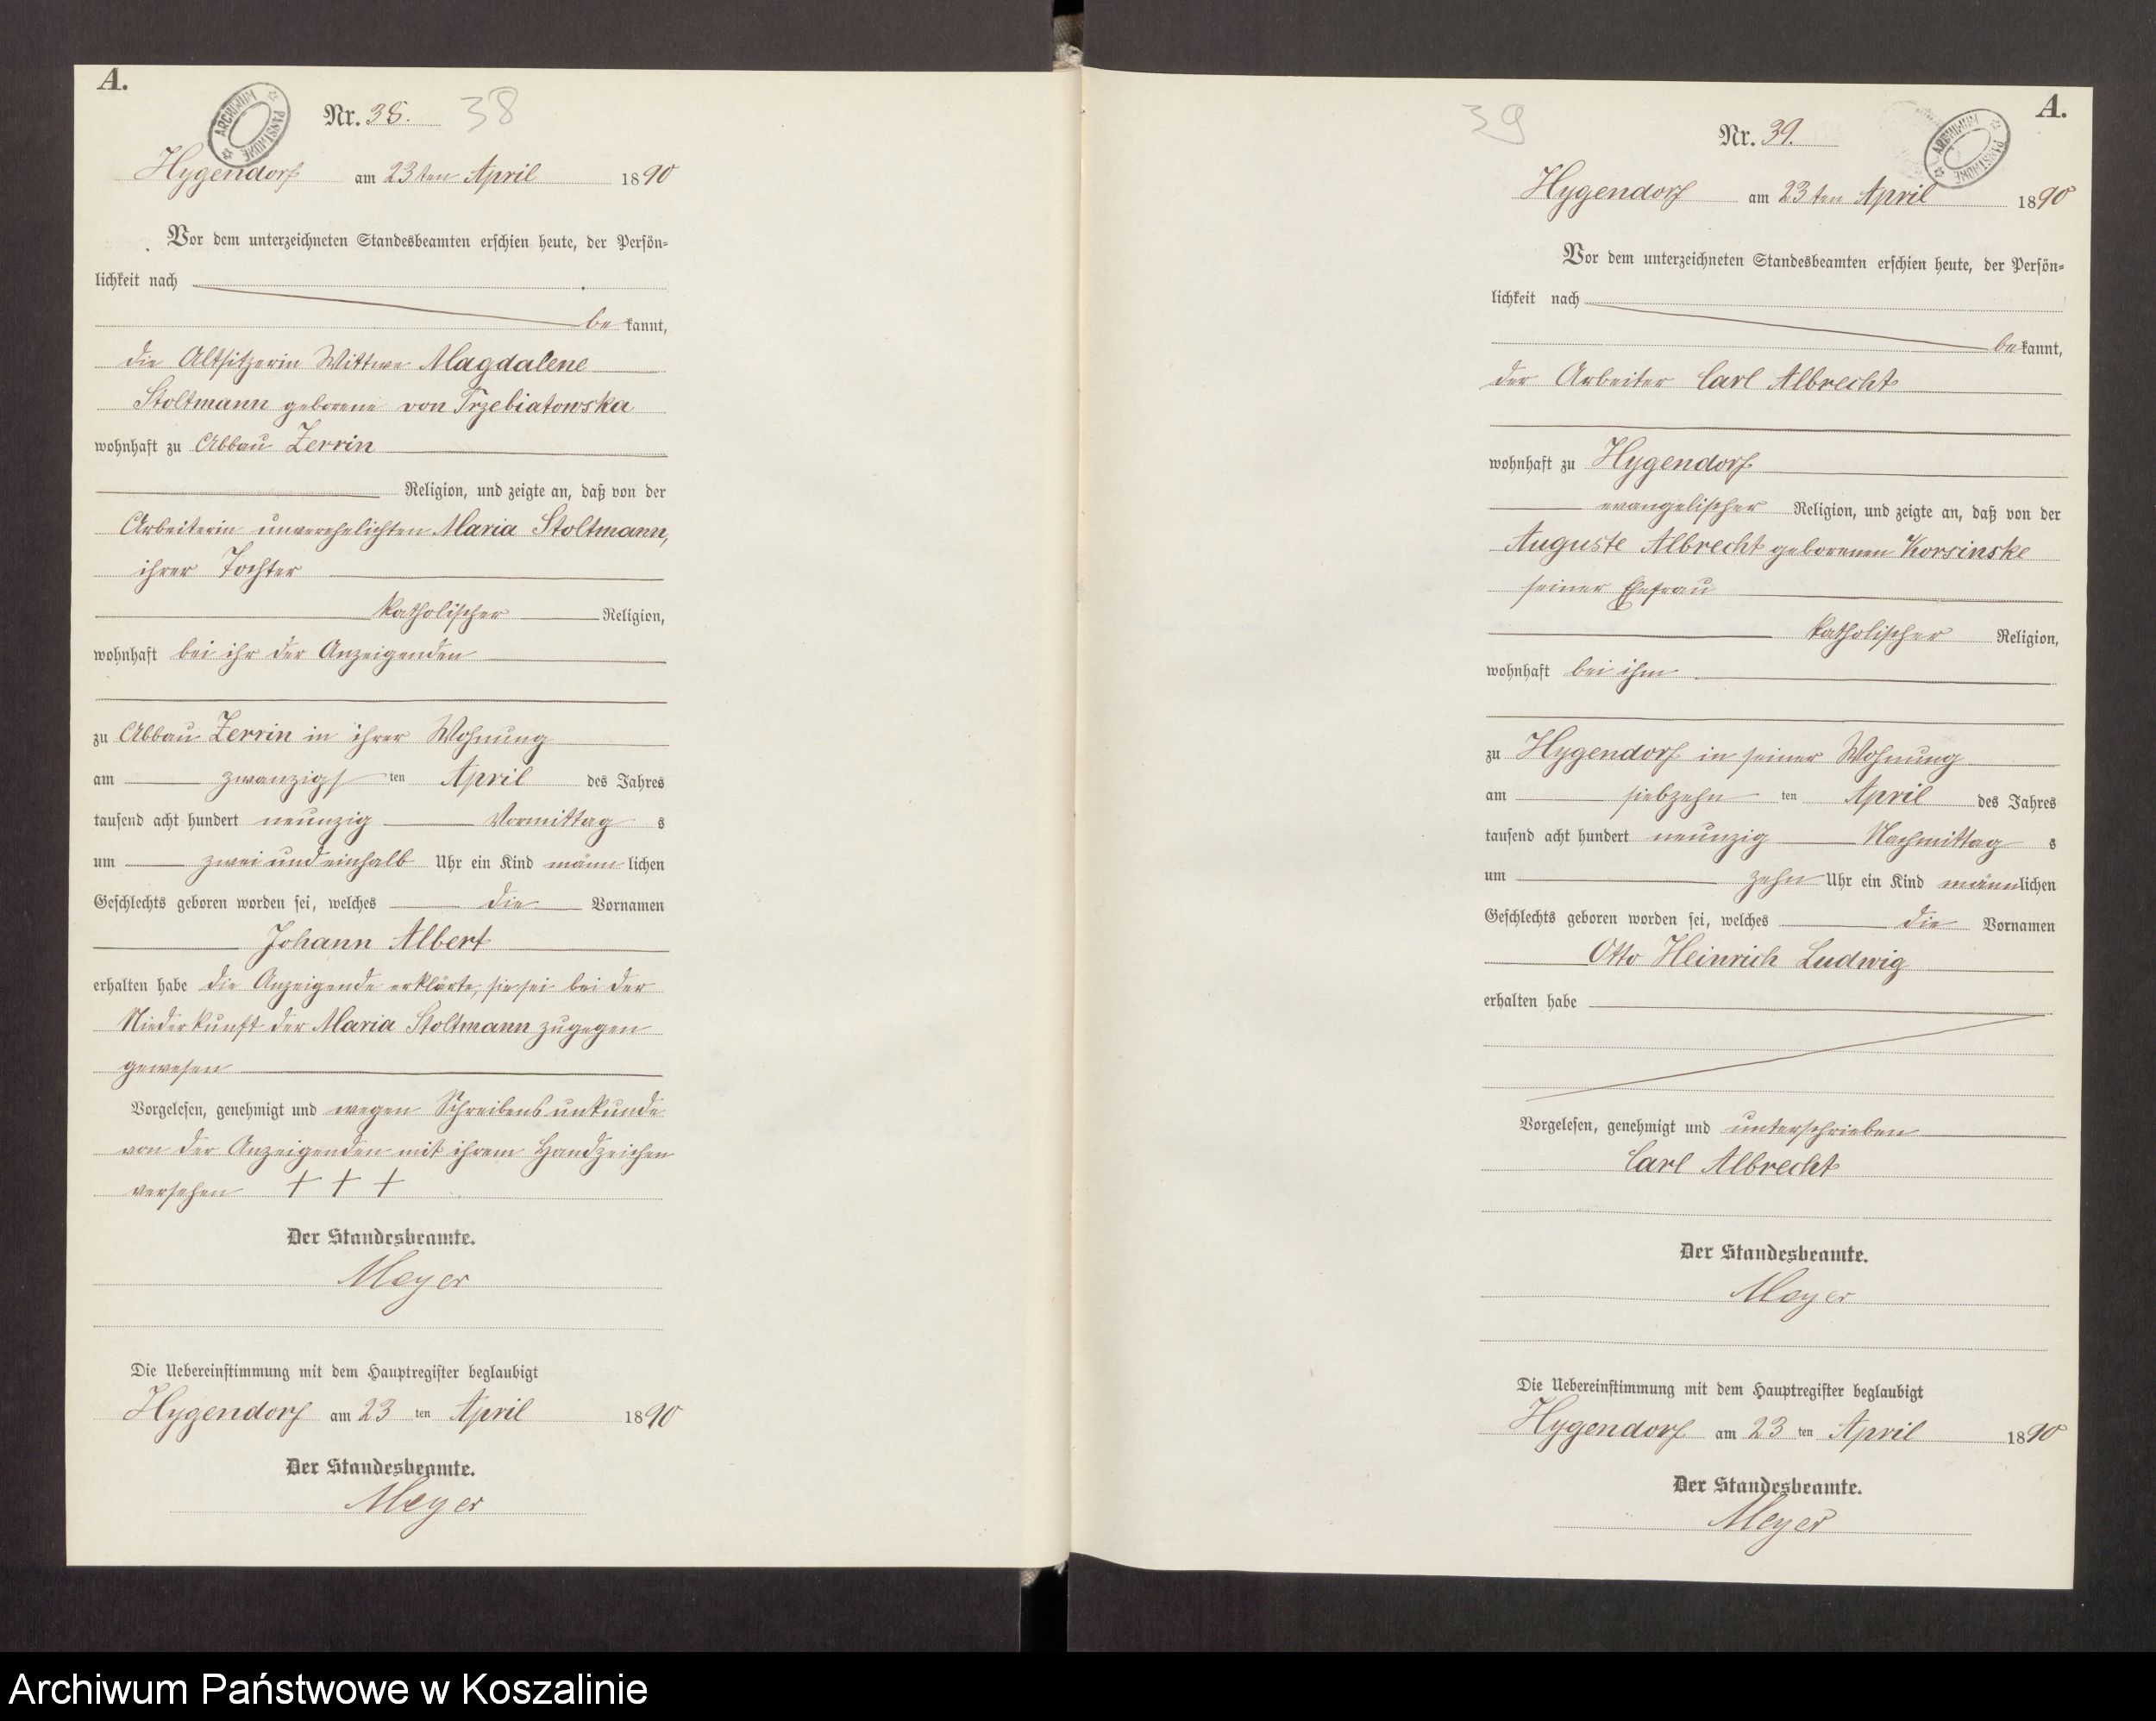 A.
ARCHIWUM PAŃSTWOWE
Nr. 38. 38
Hygendorf am 23ten April 1890
Vor dem unterzeichneten Standesbeamten erschien heute, der Persön-
lichkeit nach
be kannt,
die Altsitzerin Wittwe Magdalene
Stoltmann geborene von Trzebiatowska
wohnhaft zu Abbau Zerrin
Religion, und zeigte an, daß von der
Arbeiterin unverehelichten Maria Stoltmann,
ihrer Tochter
katholischer Religion,
wohnhaft bei ihr der Anzeigenden
zu Abbau Zerrin in ihrer Wohnung
am zwanzigs ten April des Jahres
tausend acht hundert neunzig Vormittag s
um zwei und einhalb Uhr ein Kind männ lichen
Geschlechts geboren worden sei, welches die Vornamen
Johann Albert
erhalten habe die Anzeigende erklärte, sie sei bei der
Niederkunft der Maria Stoltmann zugegen
gewesen
Vorgelesen, genehmigt und wegen Schreibensunkunde
von der Anzeigenden mit ihrem Handzeichen
versehen + + +
Der Standesbeamte.
Meyer
Die Uebereinstimmung mit dem Hauptregister beglaubigt
Hygendorf am 23 ten April 1890
Der Standesbeamte.
Meyer
A.
ARCHIWUM PAŃSTWOWE
39 Nr. 39.
Hygendorf am 23ten April 1890
Vor dem unterzeichneten Standesbeamten erschien heute, der Persön-
lichkeit nach
be kannt,
der Arbeiter Carl Albrecht
wohnhaft zu Hygendorf
evangelischer Religion, und zeigte an, daß von der
Auguste Albrecht geborenen Korsinske
seiner Ehefrau
katholischer Religion,
wohnhaft bei ihm
zu Hygendorf in seiner Wohnung
am siebzehn ten April des Jahres
tausend acht hundert neunzig Nachmittag s
um zehn Uhr ein Kind männlichen
Geschlechts geboren worden sei, welches die Vornamen
Otto Heinrich Ludwig
erhalten habe
Vorgelesen, genehmigt und unterschrieben
Carl Albrecht
Der Standesbeamte.
Meyer
Die Uebereinstimmung mit dem Hauptregister beglaubigt
Hygendorf am 23 ten April 1890
Der Standesbeamte.
Meyer
Archiwum Państwowe w Koszalinie